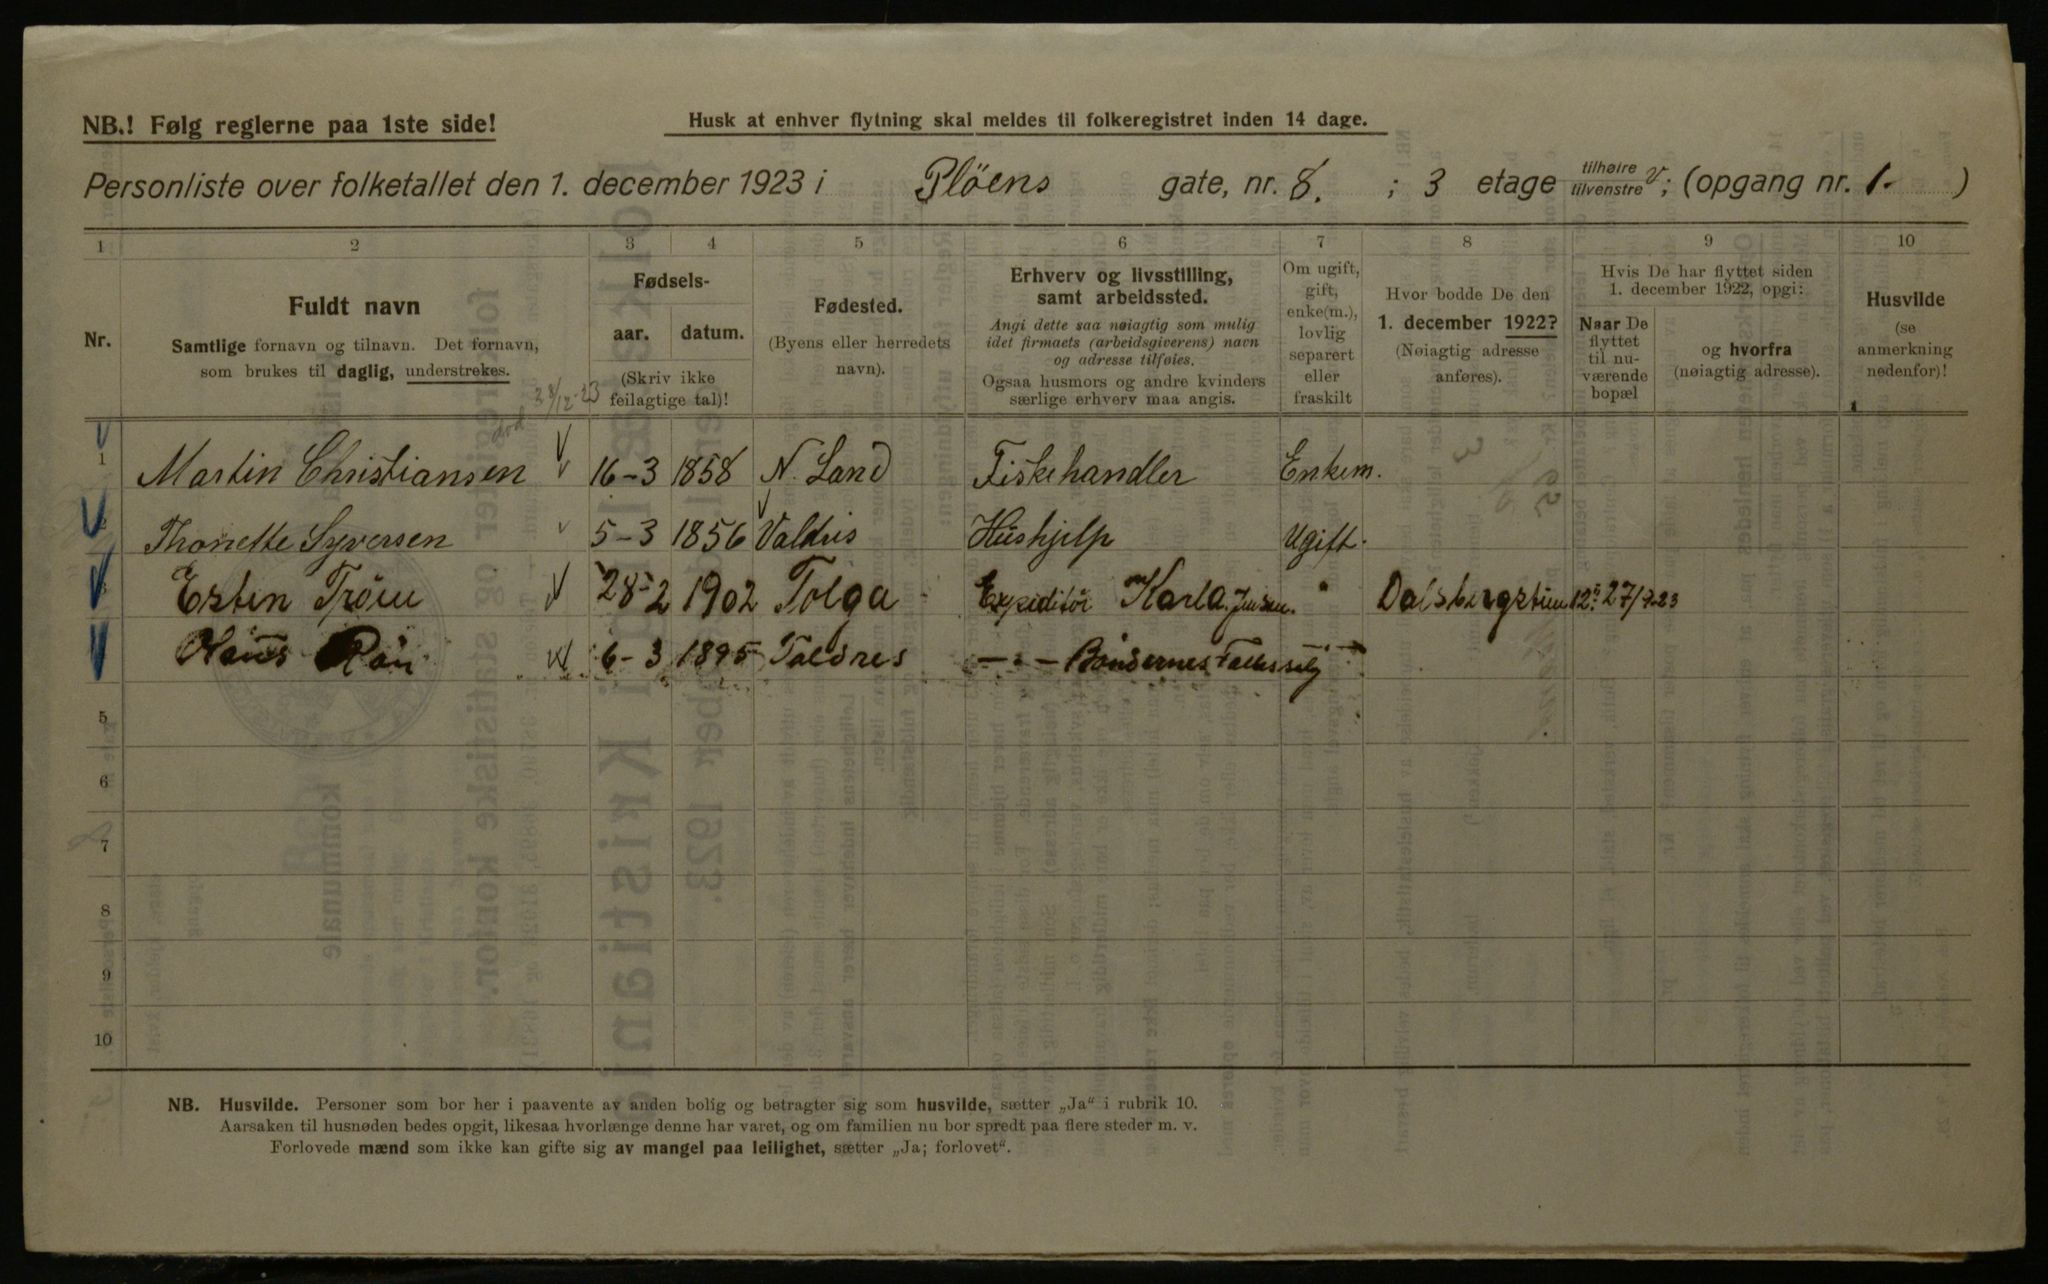 NB.! Følg reglerne paa 1ste side!
Husk at enhver flytning skal meldes til folkeregistret inden 14 dage.
Personliste over folketallet den 1. december 1923 i Plöens gate, nr. 8. ; 3 etage tilhøire tilvenstre v; (opgang nr. 1. )
1 2 3 4 5 6 7 8 9 10
Nr.
Fuldt navn
Samtlige fornavn og tilnavn. Det fornavn,
som brukes til daglig, understrekes.
Fødsels-
aar. datum.
(Skriv ikke
feilagtige tal)!
Fødested.
(Byens eller herredets
navn).
Erhverv og livsstilling,
samt arbeidssted.
Angi dette saa nøiagtig som mulig
idet firmaets (arbeidsgiverens) navn
og adresse tilføies.
Ogsaa husmors og andre kvinders
særlige erhverv maa angis.
Om ugift,
gift,
enke(m.),
lovlig
separert
eller
fraskilt
Hvor bodde De den
1. december 1922?
(Nøiagtig adresse
anføres).
Hvis De har flyttet siden
1. december 1922, opgi:
Naar De
flyttet
til nu-
værende
bopæl
og hvorfra
(nøiagtig adresse).
Husvilde
(se
anmerkning
nedenfor)!
død
1 Martin Christiansen 16-3 1858 N. Land Fiskehandler Enkem.
2 Thonette Syversen 5-3 1856 Valdris Hushjelp Ugift.
3 Esten Tröen 28-2 1902 Tolga Expeditör Karl A. Jensen. " Dalsbergstien 12 27/9.23
Hans Röu 6-3 1895 Valdres — " — Böndernes
5
6
7
8
9
10
NB. Husvilde. Personer som bor her i paavente av anden bolig og betragter sig som husvilde, sætter „Ja“ i rubrik 10.
Aarsaken til husnøden bedes opgit, likesaa hvorlænge denne har varet, og om familien nu bor spredt paa flere steder m. v.
Forlovede mænd som ikke kan gifte sig av mangel paa leilighet, sætter „Ja; forlovet“.